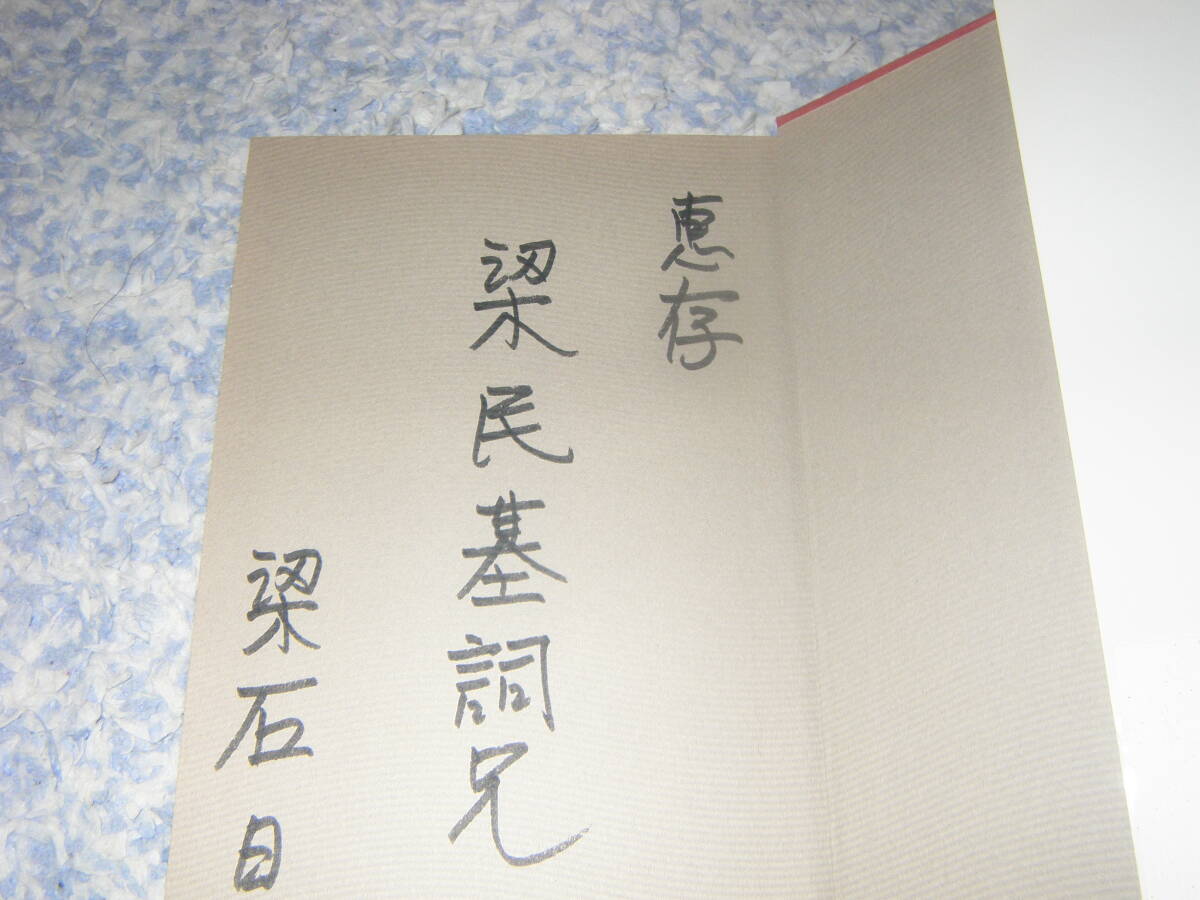 恵存
梁民基詞兄
梁石日